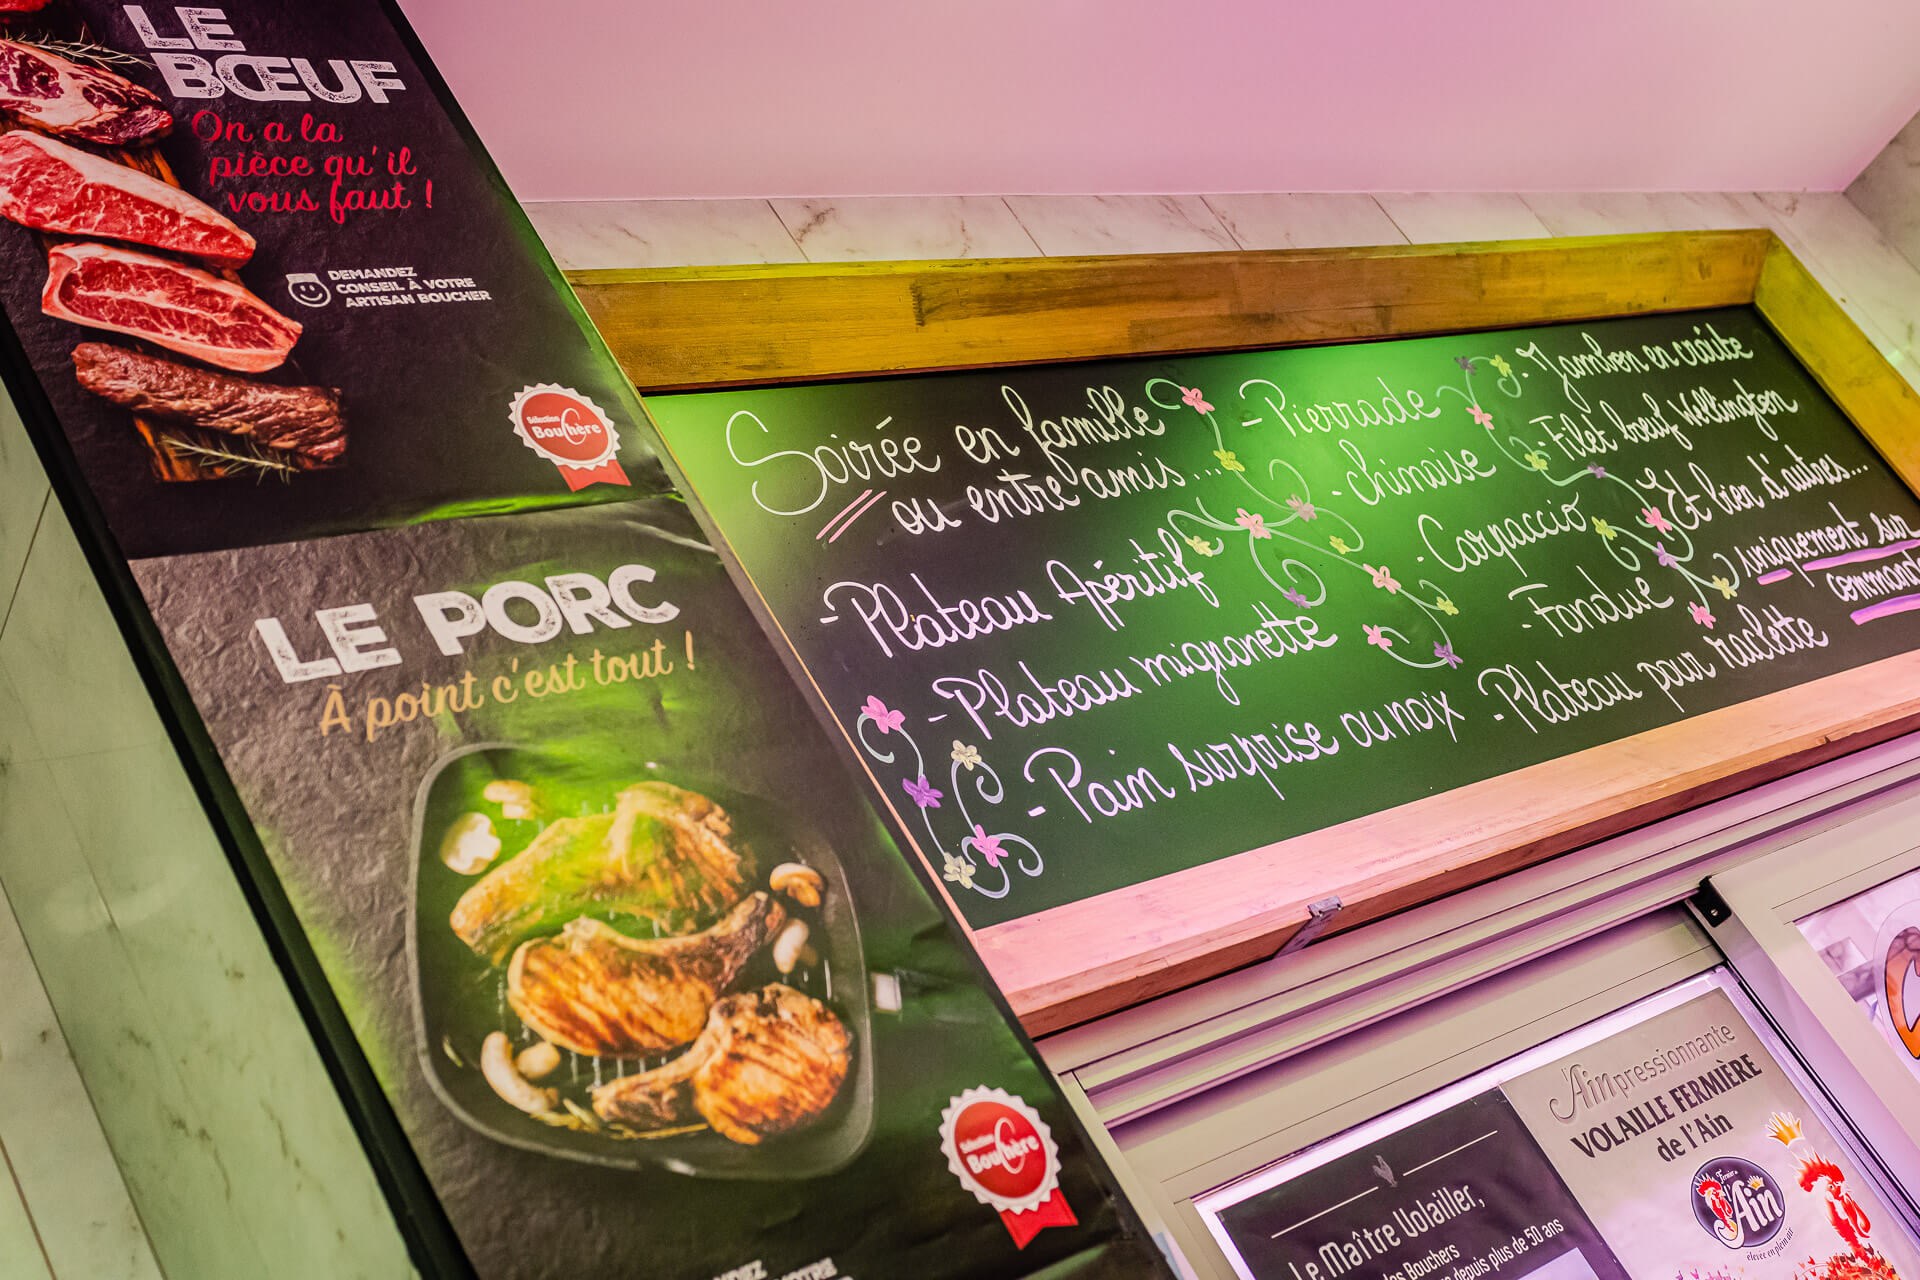 LE
BŒUF
On a la
pièce qu'il
vous faut !
DEMANDEZ
CONSEIL À VOTRE
ARTISAN BOUCHER
Sélection
Bouchère
LE PORC
À point c'est tout !
Sélection
Bouchère
Soirée en famille
ou entre amis...
- Plateau Apéritif
- Plateau mignonette
- Pain surprise ou noix
- Pierrade
- Chinoise
- Carpaccio
- Fondue
- Plateau pour raclette
- Jambon en croûte
- Filet boeuf Wellington
Et bien d'autres...
uniquement sur
commande
Le Maître Volailler,
des Bouchers
depuis plus de 50 ans
l'Ainpressionnante
VOLAILLE FERMIÈRE
de l'Ain
Fermier de
l'Ain
élevée en plein air